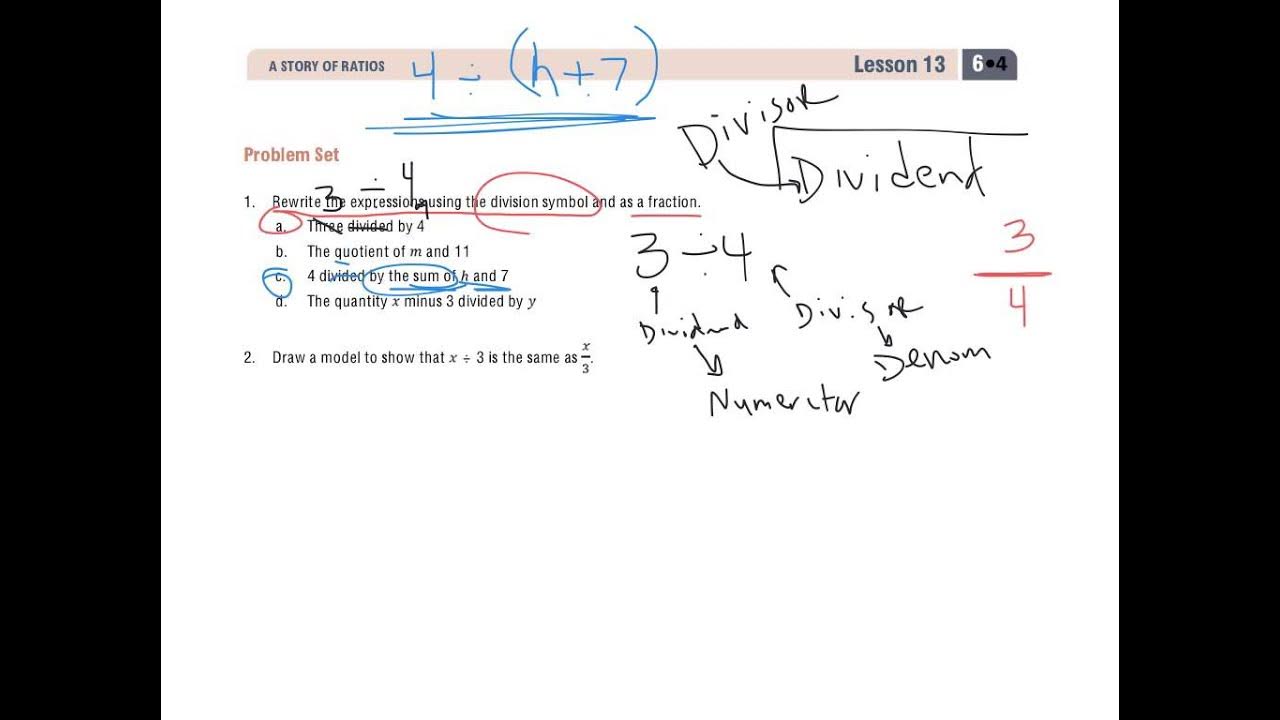 A STORY OF RATIOS
4 ÷ (h + 7)
Lesson 13
6•4
Problem Set
Divisor
Divident
3 ÷ 4
1. Rewrite the expressions using the division symbol and as a fraction.
a. Three divided by 4
b. The quotient of m and 11
c. 4 divided by the sum of h and 7
d. The quantity x minus 3 divided by y
3 ÷ 4
3
4
Dividend
Divisor
Numerator
Denom
2. Draw a model to show that x ÷ 3 is the same as x/3.